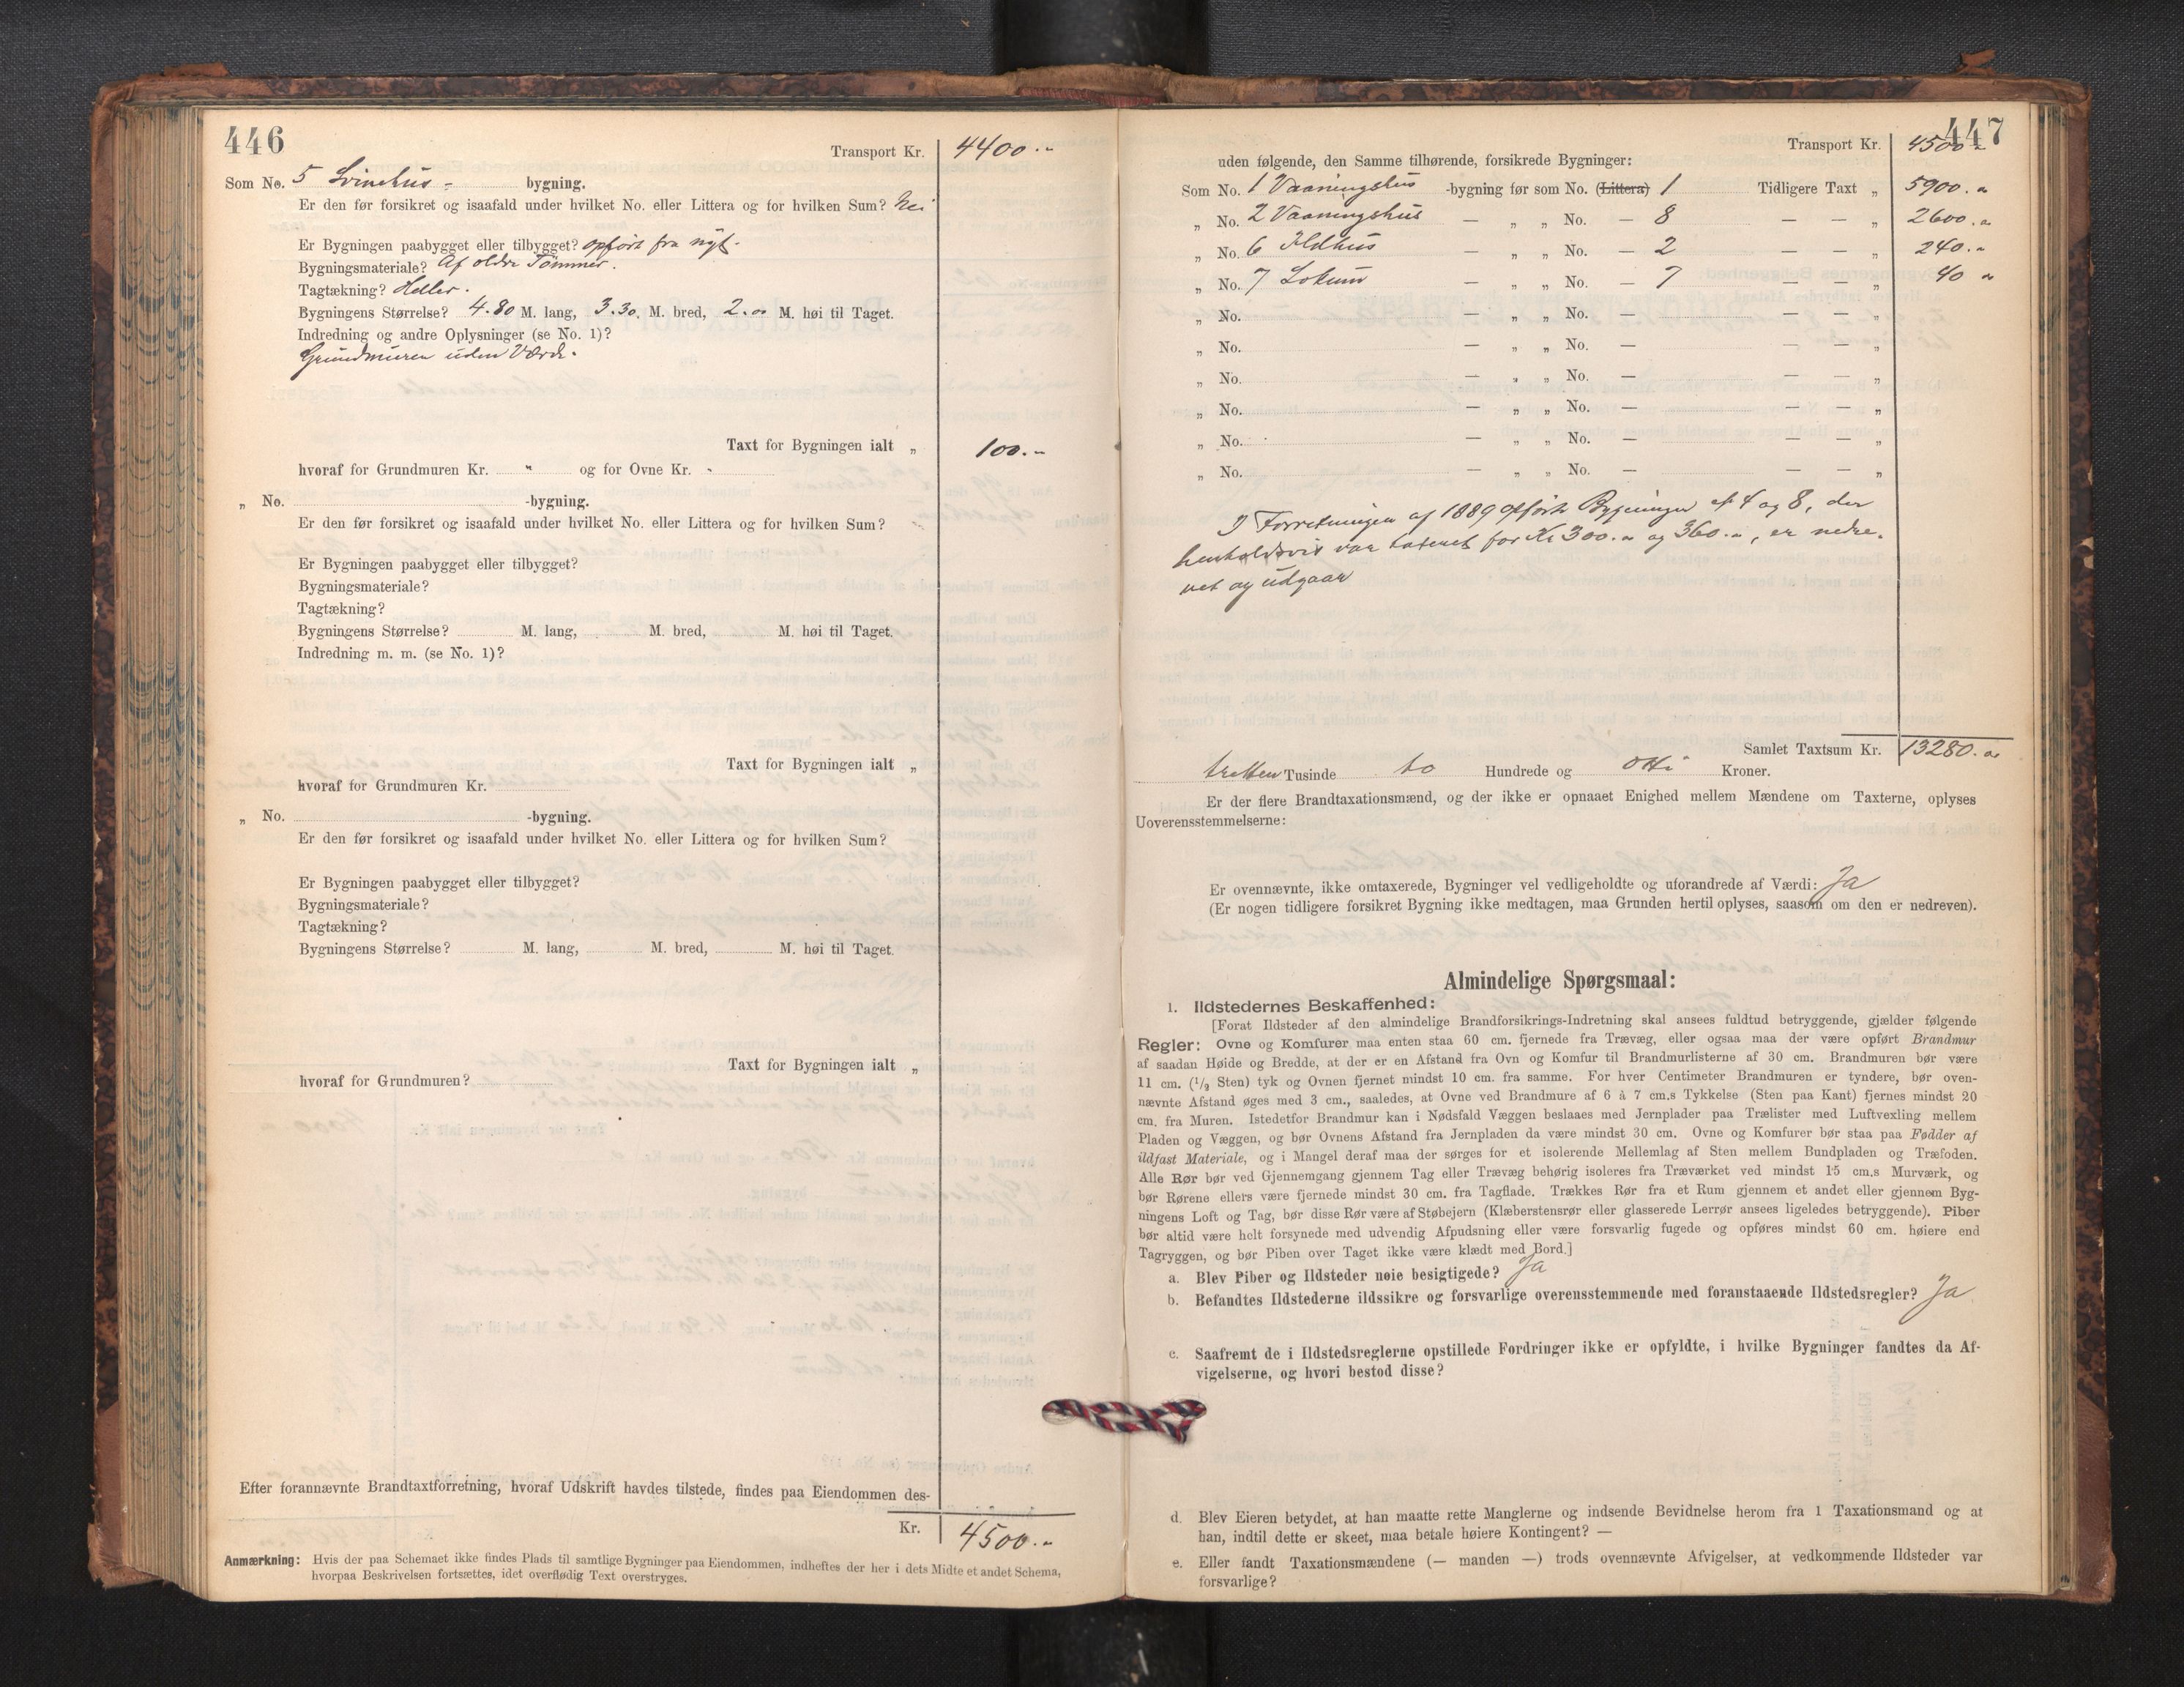 446
Transport Kr. 4400.-
Som No. 5 Svinehus - bygning.
Er den før forsikret og isaafald under hvilket No. eller Littera og for hvilken Sum? Nei
Er Bygningen paabygget eller tilbygget? opført fra nyt.
Bygningsmateriale? Af oldre Tømmer.
Tagtækning? Heller.
Bygningens Størrelse? 4.80 M. lang, 3.30. M. bred, 2.00 M. høi til Taget.
Indredning og andre Oplysninger (se No. 1)?
Grundmuren uden Værdi.
Taxt for Bygningen ialt „ 100.-
hvoraf for Grundmuren Kr. " og for Ovne Kr. "
„ No. -bygning.
Er den før forsikret og isaafald under hvilket No. eller Littera og for hvilken Sum?
Er Bygningen paabygget eller tilbygget?
Bygningsmateriale?
Tagtækning?
Bygningens Størrelse? M. lang, M. bred, M. høi til Taget.
Indredning m. m. (se No. 1)?
Taxt for Bygningen ialt „
hvoraf for Grundmuren Kr.
„ No. -bygning.
Er den før forsikret og isaafald under hvilket No. eller Littera og for hvilken Sum?
Er Bygningen paabygget eller tilbygget?
Bygningsmateriale?
Tagtækning?
Bygningens Størrelse? M. lang, M. bred, M. høi til Taget.
Taxt for Bygningen ialt „
hvoraf for Grundmuren?
Efter forannævnte Brandtaxtforretning, hvoraf Udskrift havdes tilstede, findes paa Eiendommen des-
Kr. 4500.-
Anmærkning: Hvis der paa Schemaet ikke findes Plads til samtlige Bygninger paa Eiendommen, indheftes der her i dets Midte et andet Schema,
hvorpaa Beskrivelsen fortsættes, idet overflødig Text overstryges.
447
Transport Kr. 4500.-
uden følgende, den Samme tilhørende, forsikrede Bygninger:
Som No. 1 Vaaningshus -bygning før som No. (Littera) 1 Tidligere Taxt „ 5900.-
„ No. 2 Vaaningshus — „ „ No. — 8 — — „ 2600.-
„ No. 6 Ildhus — „ „ No. — 2 — — „ 240.-
„ No. 7 Lokum — „ „ No. — 7 — — „ 40 -
„ No. — „ „ No. — — — „
„ No. — „ „ No. — — — „
„ No. — „ „ No. — — — „
„ No. — „ „ No. — — — „
„ No. — „ „ No. — — — „
„ No. — „ „ No. — — — „
I Forretningen af 1889 opførte Bygninger № 4 og 8, der
henholdsvis var taxeret for Kr 300.- og 360.-, er nedre-
vet og udgaar
Samlet Taxtsum Kr. 13280.-
tretten Tusinde to Hundrede og otti Kroner.
Er der flere Brandtaxationsmænd, og der ikke er opnaaet Enighed mellem Mændene om Taxterne, oplyses
Uoverensstemmelserne:
Er ovennævnte, ikke omtaxerede, Bygninger vel vedligeholdte og uforandrede af Værdi: Ja
(Er nogen tidligere forsikret Bygning ikke medtagen, maa Grunden hertil oplyses, saasom om den er nedreven).
Almindelige Spørgsmaal:
1. Ildstedernes Beskaffenhed:
[Forat Ildsteder af den almindelige Brandforsikrings-Indretning skal ansees fuldtud betryggende, gjælder følgende
Regler: Ovne og Komfurer maa enten staa 60 cm. fjernede fra Trævæg, eller ogsaa maa der være opført Brandmur
af saadan Høide og Bredde, at der er en Afstand fra Ovn og Komfur til Brandmurlisterne af 30 cm. Brandmuren bør være
11 cm. (1/2 Sten) tyk og Ovnen fjernet mindst 10 cm. fra samme. For hver Centimeter Brandmuren er tyndere, bør oven-
nævnte Afstand øges med 3 cm., saaledes, at Ovne ved Brandmure af 6 à 7 cm.s Tykkelse (Sten paa Kant) fjernes mindst 20
cm. fra Muren. Istedetfor Brandmur kan i Nødsfald Væggen beslaaes med Jernplader paa Trælister med Luftvexling mellem
Pladen og Væggen, og bør Ovnens Afstand fra Jernpladen da være mindst 30 cm. Ovne og Komfurer bør staa paa Fødder af
ildfast Materiale, og i Mangel deraf maa der sørges for et isolerende Mellemlag af Sten mellem Bundpladen og Træfoden.
Alle Rør bør ved Gjennemgang gjennem Tag eller Trævæg behørig isoleres fra Træværket ved mindst 15 cm.s Murværk, og
bør Rørene ellers være fjernede mindst 30 cm. fra Tagflade. Trækkes Rør fra et Rum gjennem et andet eller gjennem Byg-
ningens Loft og Tag, bør disse Rør være af Støbejern (Klæberstensrør eller glasserede Lerrør ansees ligeledes betryggende). Piber
bør altid være helt forsynede med udvendig Afpudsning eller være forsvarlig fugede og opføres mindst 60 cm. høiere end
Tagryggen, og bør Piben over Taget ikke være klædt med Bord.]
a. Blev Piber og Ildsteder nøie besigtigede? Ja
b. Befandtes Ildstederne ildssikre og forsvarlige overensstemmende med foranstaaende Ildstedsregler? Ja
c. Saafremt de i Ildstedsreglerne opstillede Fordringer ikke er opfyldte, i hvilke Bygninger fandtes da Af-
vigelserne, og hvori bestod disse?
d. Blev Eieren betydet, at han maatte rette Manglerne og indsende Bevidnelse herom fra 1 Taxationsmand og at
han, indtil dette er skeet, maa betale høiere Kontingent? —
e. Eller fandt Taxationsmændene (— manden —) trods ovennævnte Afvigelser, at vedkommende Ildsteder var
forsvarlige?